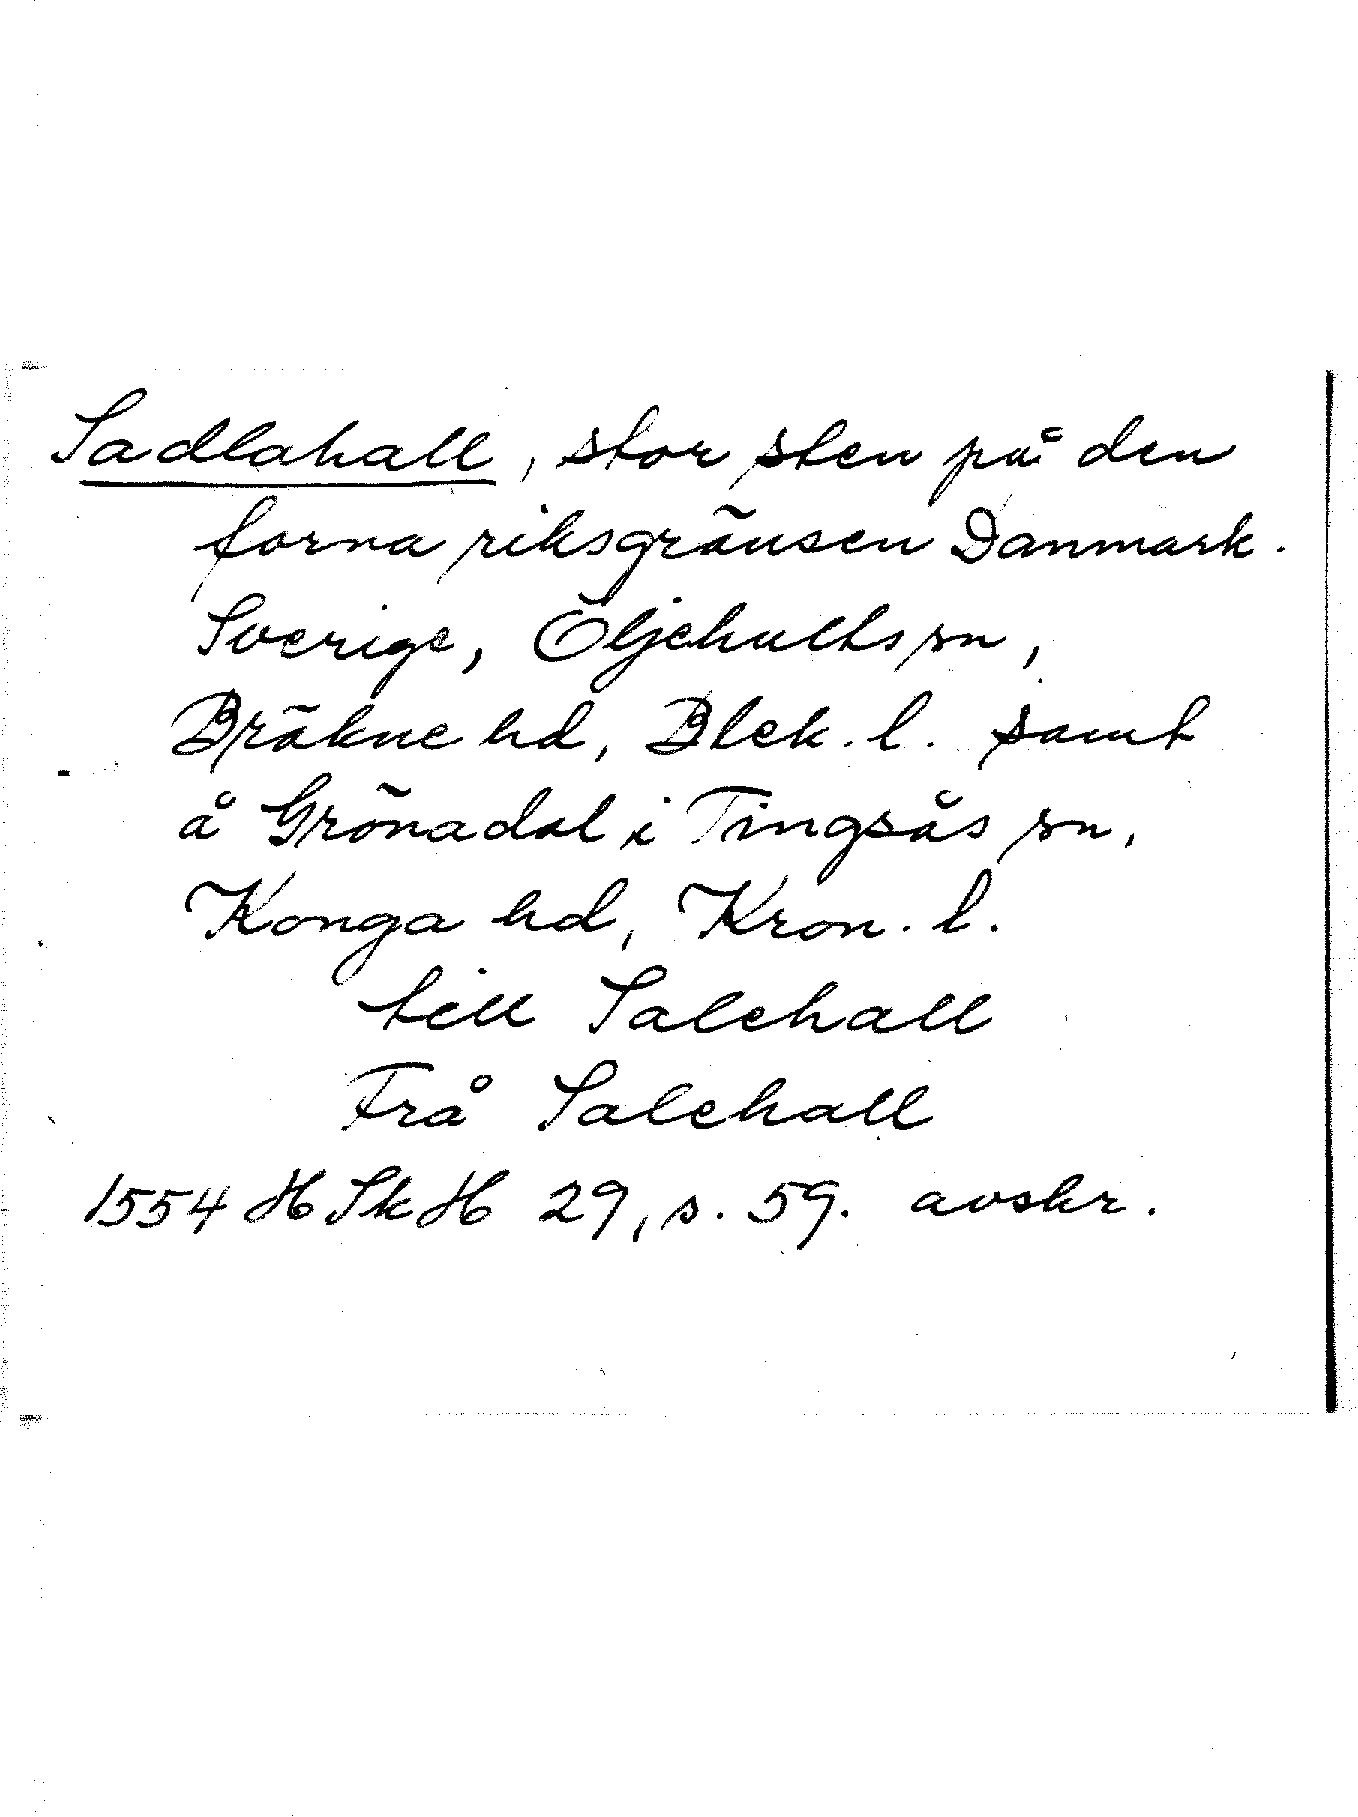 Sadlahall, stor sten på den
forna riksgränsen Danmark.
Sverige, Öljehults sn,
Bräkne hd, Blek. l. samt
å Grönadal i Tingsås sn,
Konga hd, Kron. l.
till Salehall
Frå Salehall
1554 H Sk H 29, s. 59. avskr.